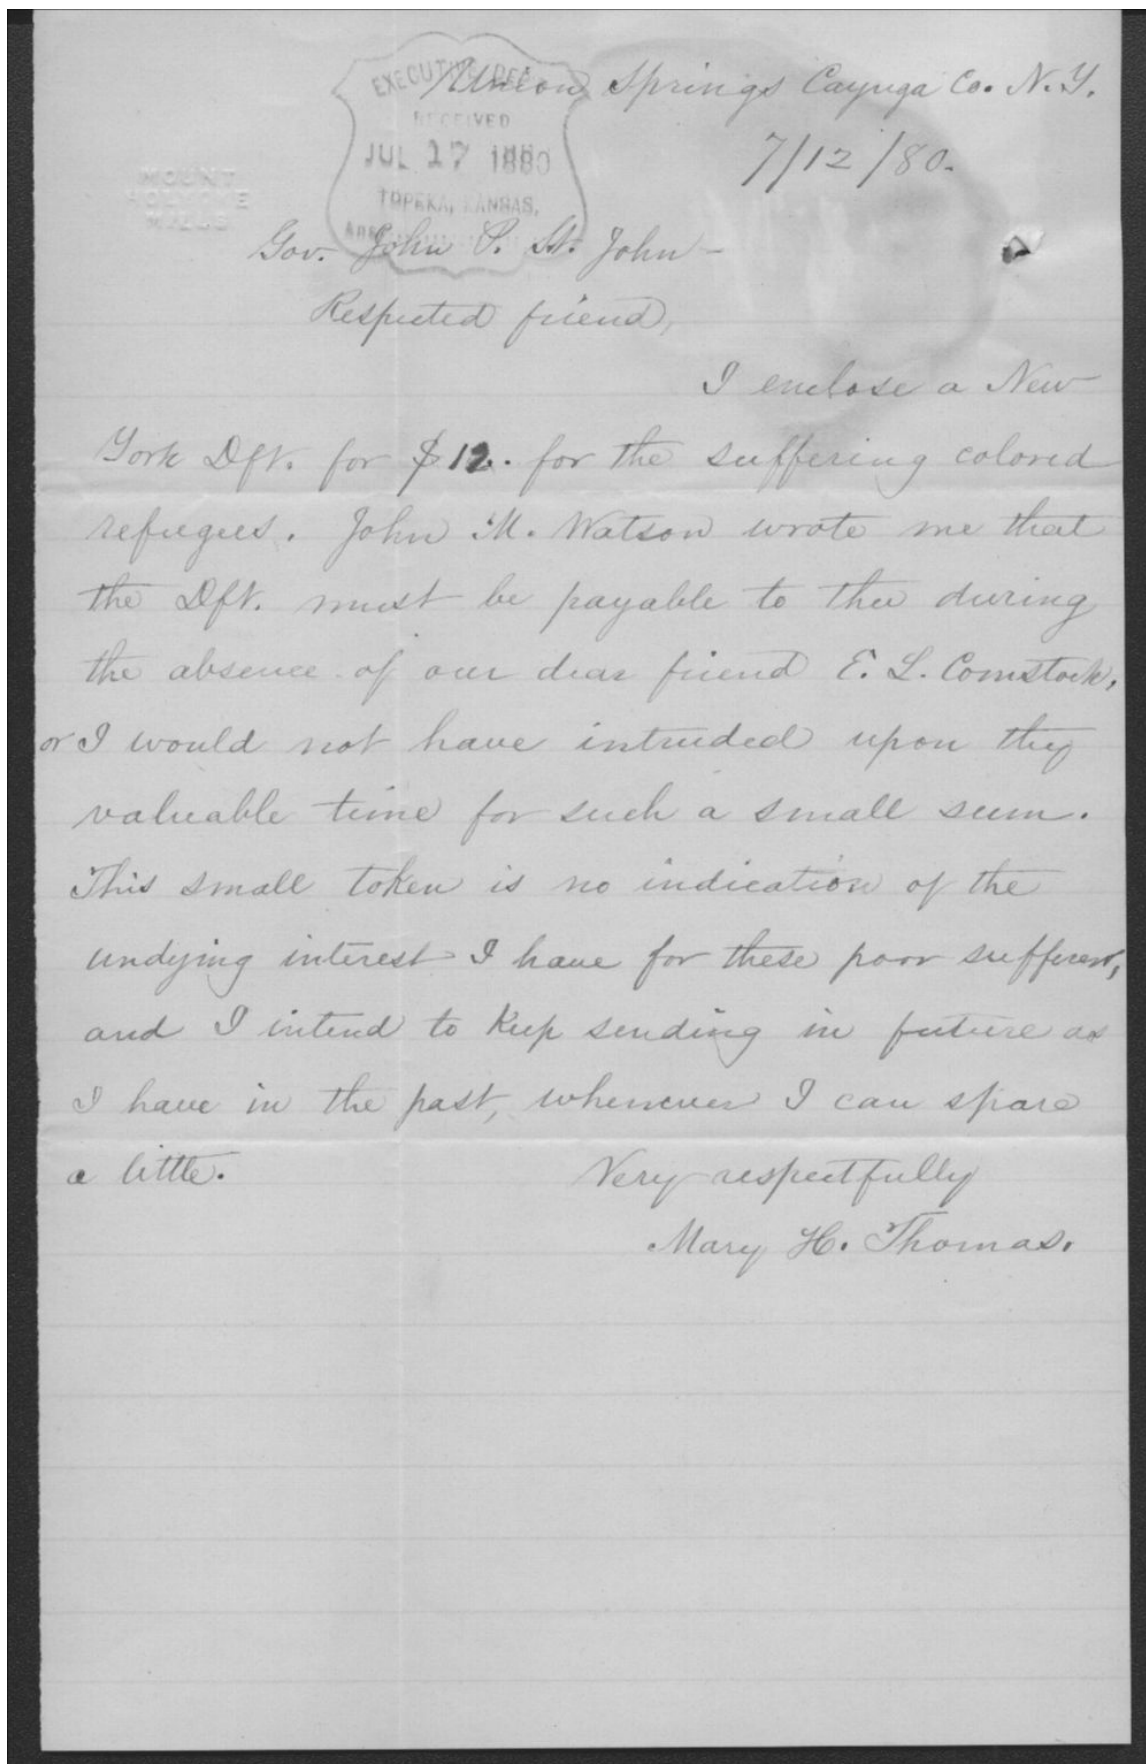 Union Springs Cayuga Co. N.Y.
EXECUTIVE DEP
RECEIVED
JUL 17 1880
TOPEKA, KANSAS.
Ans
7/12/80.
MOUNT
HOLYOKE
MILLS
Gov. John P. St. John –
Respected friend,
I enclose a New
York Dft. for $12. for the suffering colored
refugees. John M. Watson wrote me that
the Dft. must be payable to thee during
the absence of our dear friend E. L. Comstock,
or I would not have intruded upon thy
valuable time for such a small sum.
This small token is no indication of the
undying interest I have for these poor sufferers,
and I intend to keep sending in future as
I have in the past, whenever I can spare
a little. Very respectfully
Mary H. Thomas.